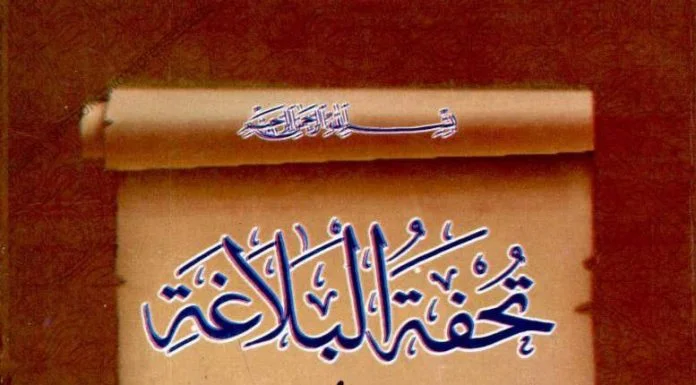 بسم الله الرحمن الرحيم
تُحْفَةُ الْبَلَاغَةِ